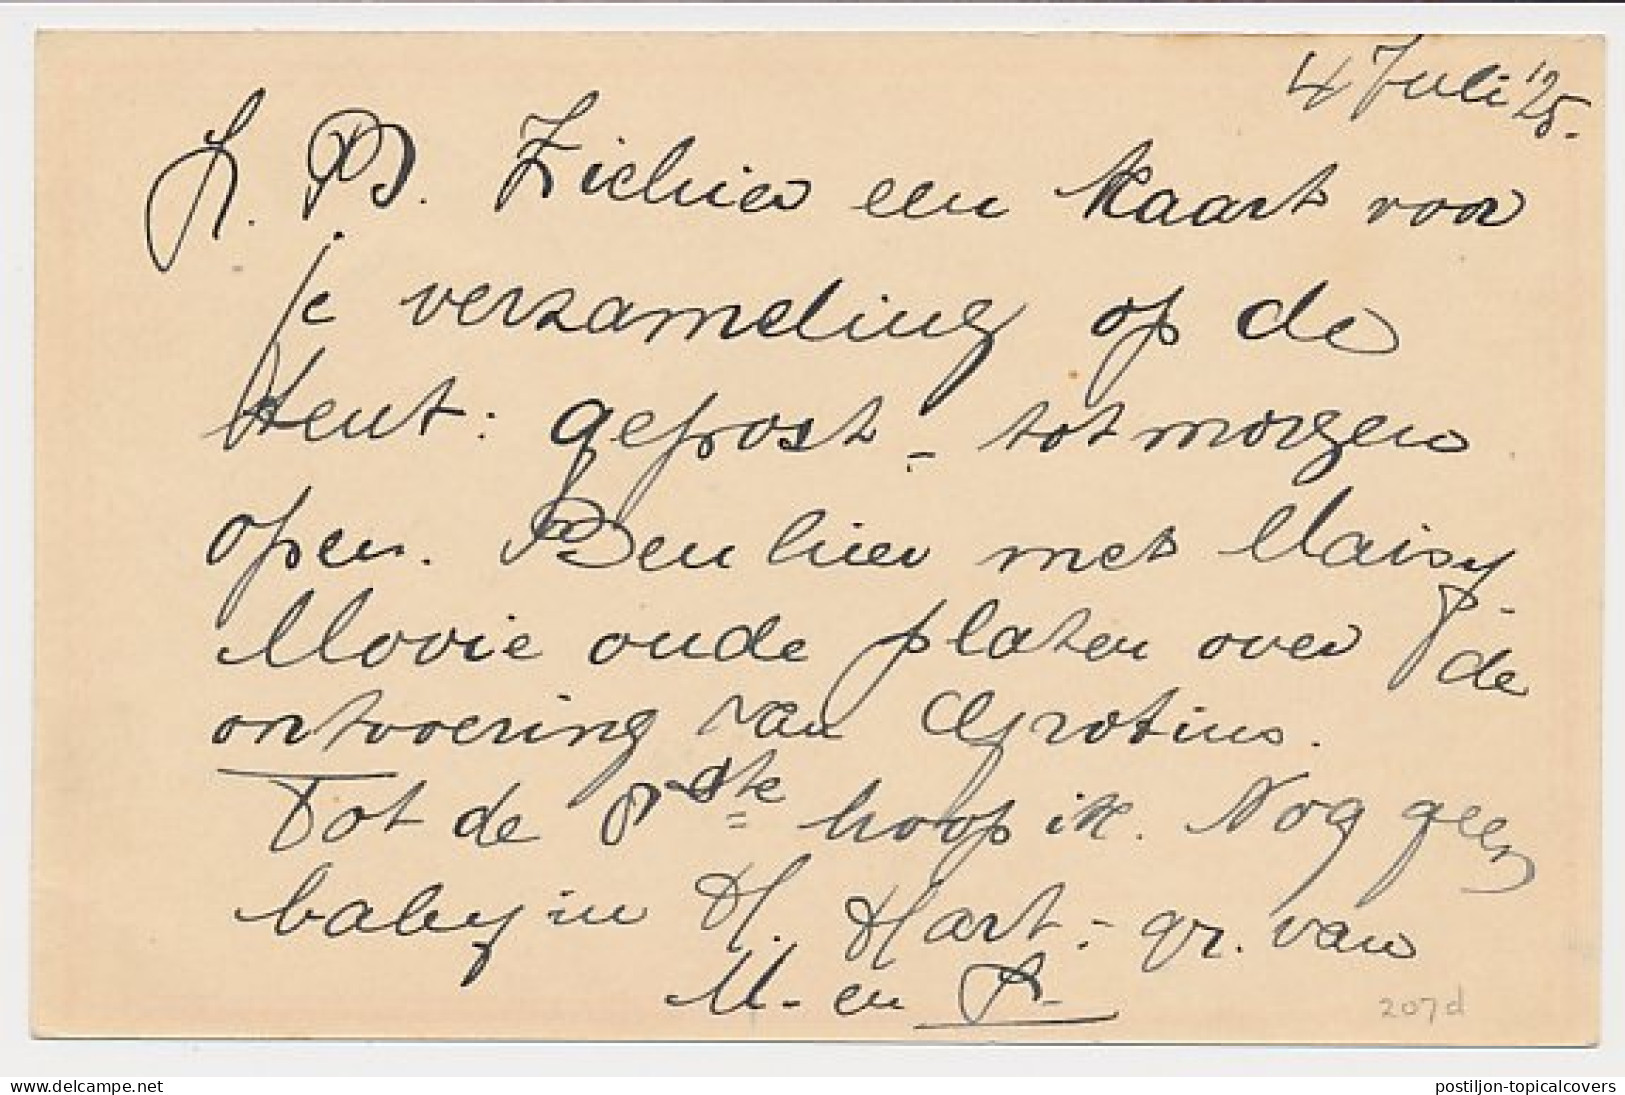 4 Juli '25.
L. B. Ziehier een kaart voor
je verzameling op de
tent: gepost - tot morgen
open. Ben hier met Maisy.
Mooie oude platen over de
ontvoering van Grotius.
Tot de 8ste hoop ik. Nog geen
baby in H. Hart. - gr. van
M. en
207d
www.delcampe.net
postiljon-topicalcovers